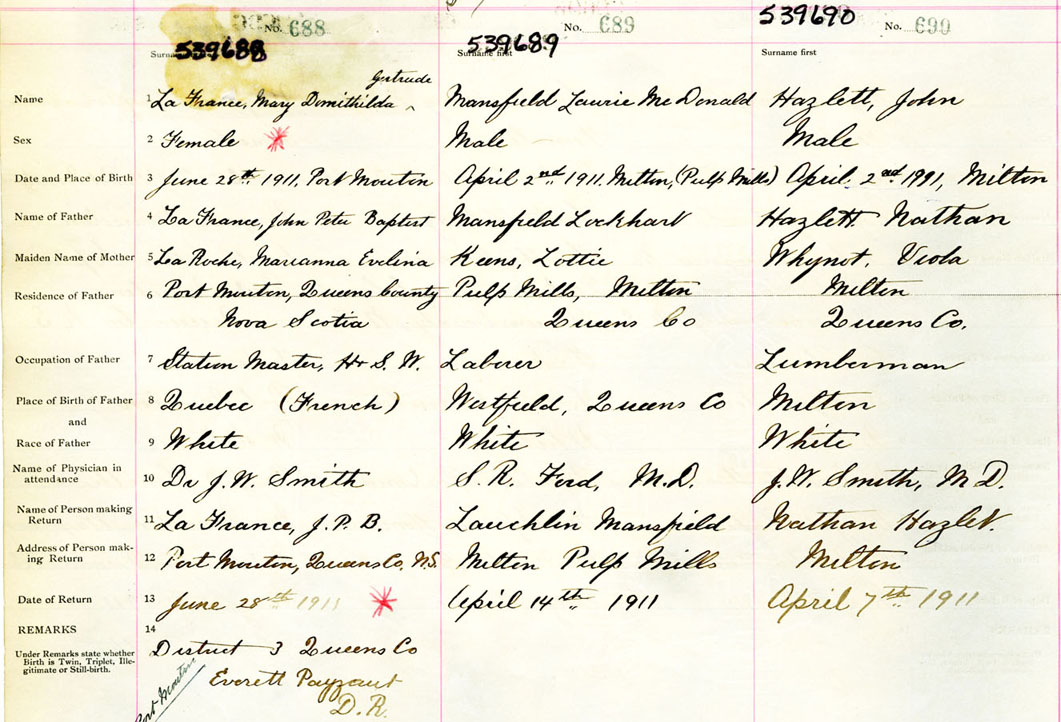 No. 688 No. 689 No. 690
539688 539689 539690
Surname first Surname first
Gertrude
Name 1 La France, Mary Domithilda ^ Mansfield Laurie Mc Donald Hazlett, John
Sex 2 Female Male Male
Date and Place of Birth 3 June 28th 1911, Port Mouton April 2nd 1911. Milton, (Pulp Mills) April, 2nd 1991, Milton
Name of Father 4 La France, John Peter Baptist Mansfield Lockhart Hazlett Nathan
Maiden Name of Mother 5 La Roche, Marianna Evelina Keens, Lottie Whynot, Viola
Residence of Father 6 Port Mouton, Queens County Pulp Mills, Milton Milton
Nova Scotia Queens Co Queens Co.
Occupation of Father 7 Station Master, H & S. W. Laborer Lumberman
Place of Birth of Father 8 Quebec (French) Westfield, Queens Co Milton
and
Race of Father 9 White White White
Name of Physician in
attendance 10 Dr J. W. Smith S. R. Ford, M.D. J. W. Smith, M D.
Name of Person making
Return 11 La France, J. P. B. Lauchlin Mansfield Nathan Hazlet.
Address of Person mak-
ing Return 12 Port Mouton, Queens Co, N.S. Milton Pulp Mills Milton
Date of Return 13 June 28th 1911 April 14th 1911 April 7th 1911
REMARKS 14
Under Remarks state whether
Birth is Twin, Triplet, Ille-
gitimate or Still-birth.
District 3 Queens Co
Everett Payzant
D. R.
Port Mouton